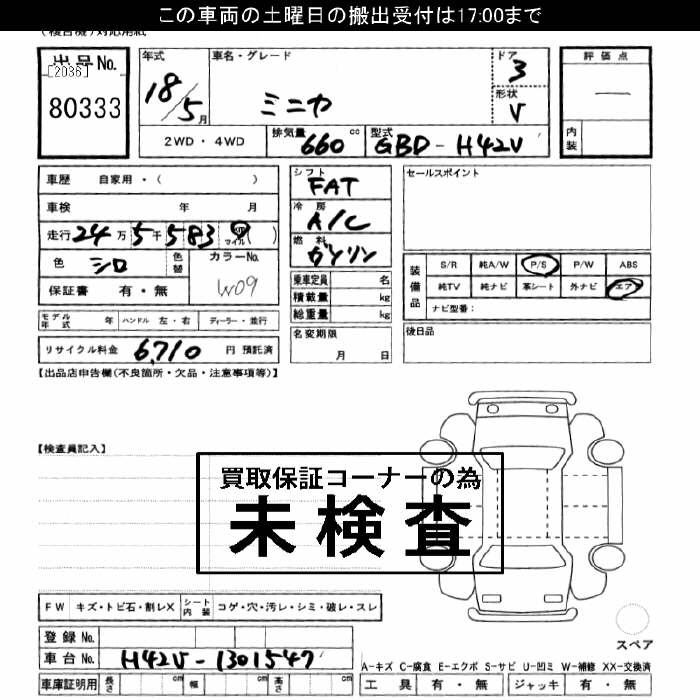 この車両の土曜日の搬出受付は17:00まで
出品No.
[2036]
80333
年式
18/5月
車名・グレード
ミニカ
ドア
3
形状
V
評価点
―
内装
2WD・4WD
排気量 660 cc
型式 GBD-H42V
車歴 自家用・( )
車検 年 月
走行 24万5千583 km マイル ( )
色 シロ
色替
カラーNo.
W09
保証書 有・無
モデル年式 年 ハンドル 左・右 ディーラー・並行
リサイクル料金 6,710 円 預託済
シフト
FAT
冷房
A/C
燃料
ガソリン
乗車定員 名
積載量 kg
総重量 kg
名変期限
月 日
セールスポイント
装備品
S/R 純A/W P/S P/W ABS
純TV 純ナビ 革シート 外ナビ エア
ナビ型番:
後日品
【出品店申告欄(不良箇所・欠品・注意事項等)】
【検査員記入】
買取保証コーナーの為
未検査
FW キズ・トビ石・割レX シート内装 コゲ・穴・汚レ・シミ・破レ・スレ
登録No.
車台No. H42V-1301547
車庫証明用 長さ cm 幅 cm 高さ cm
スペア
A-キズ C-腐食 E-エクボ S-サビ U-凹ミ W-補修 XX-交換済
工具 有・無 ジャッキ 有・無